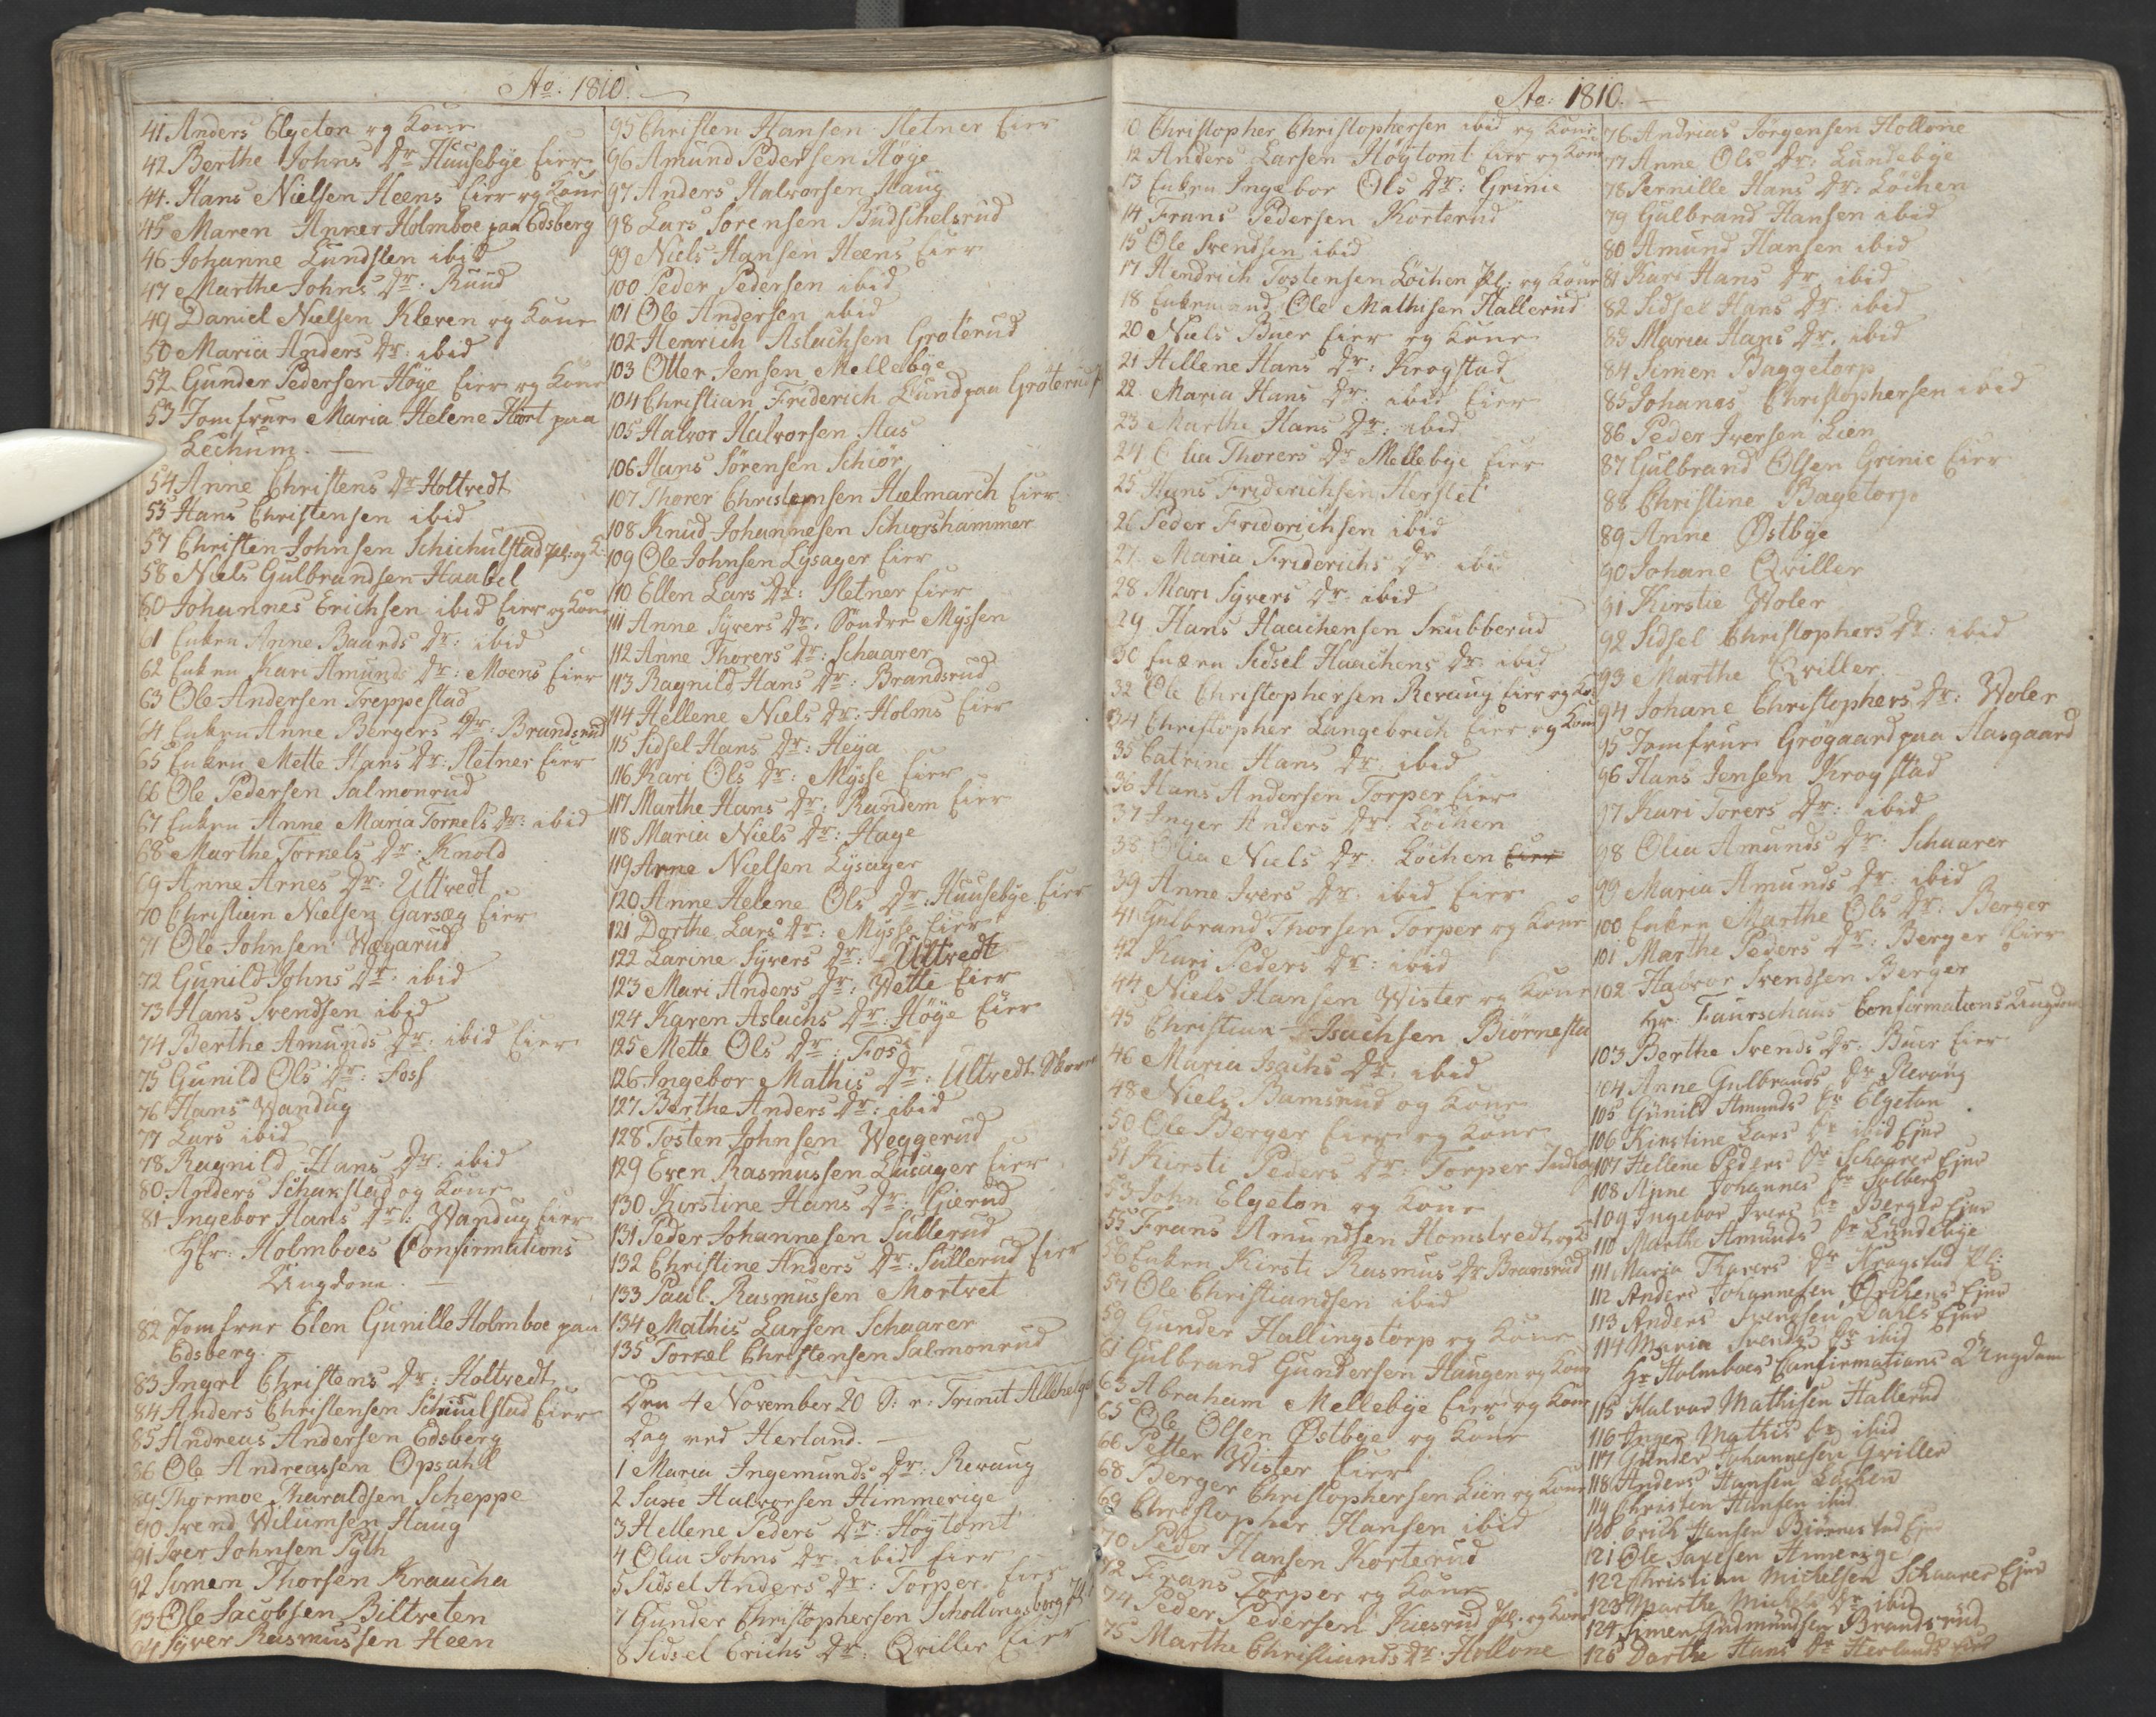 Ao. 1810.
41 Anders Elgeton og Kone
42 Berthe Johns Dr Huusebÿe Eier
44. Hans Nielsen Heens Eier og Kone
45 Maren Anker Holmboe paa Edsberg
46 Johanne Lundsten ibid
47 Marthe Johns Dr. Ruud
49 Daniel Nielsen Kleven og Kone
50 Maria Anders Dr: ibid
52 Gunder Pedersen Höÿe Eier og Kone
53 Jomfrue Maria Helene Hört paa
Lechum. —
54 Anne Christens Dr Holtvedt
55 Hans Christensen ibid
57 Christen Johnsen Schichulstad Pl: og K:
58 Niels Gulbrandsen Haabel
60 Johannes Erichsen ibid Eier og Kone
61 Enken Anne Baards Dr: ibid
62 Enken Kari Amunds Dr: Moens Eier
63 Ole Andersen Treppestad
64 Enken Anne Bergers Dr: Brandsrud
65 Enken Mette Hans Dr: Sletner Eier
66 Ole Pedersen Salmonrud
67 Enken Anne Maria Torkels Dr: ibid
68 Marthe Torkels Dr: Knold
69 Anne Arnes Dr: Ultvedt
70 Christian Nielsen Garsæg Eier
71 Ole Johnsen Wegarud
72 Gunild Johns Dr: ibid
73 Hans Svendsen ibid
74 Berthe Amunds Dr: ibid Eier
75 Gunild Ols Dr: Foss
76 Hans Wandug
77 Lars ibid
78 Ragnild Hans Dr: ibid
80. Anders Schakstad og Kone
81 Ingebor Hans Dr: Wandug Eier
Hr: Holmboes Confirmations
Ungdom. —
82 Jomfrue Elen Gunille Holmboe paa
Edsberg. —
83 Ingri Christens Dr: Holtvedt
84 Anders Christensen Eier
85 Andreas Andersen Edsberg
86 Ole Andreassen Opsahl
89 Thormoe Tharaldsen Scheppe
90 Svend Wilumsen Haug
91 Iver Johnsen Pÿth
92 Simen Thorsen Kraacha
93 Ole Jacobsen Biltveten
94 Sÿver Rasmussen Heen
95 Christen Hansen Sletner Eier
96 Amund Pedersen Höÿe
97 Anders Halvorsen Haug
98 Lars Sörensen Budschelsrud
99 Niels Hansen Heens Eier
100 Peder Pedersen ibid
101 Ole Andersen ibid
102 Henrich Aslachsen Groterud
103 Otter Jensen Mellebÿe
104 Christian Friderich Lund paa Groterud
105 Halvor Halvorsen Aas
106 Hans Sörensen Schiör
107 Thorer Christensen Hælmarch Eier
108 Knud Johannesen Schiørshammer
109 Ole Johnsen Lÿsager Eier
110 Ellen Lars Dr: Sletner Eier
111 Anne Sÿvers Dr. Söndre Mÿssen
112 Anne Thorers Dr: Schaarer
113 Ragnild Hans Dr: Brandsrud
114 Hellene Niels Dr: Holms Eier
115 Sidsel Hans Dr: Heÿa
116 Kari Ols Dr: Mÿsse Eier
117 Marthe Hans Dr: Randem Eier
118 Maria Niels Dr: Hage
119 Arne Nielsen Lÿsager
120 Anne Helene Ols Dr: Huusebÿe Eier
121 Dorthe Lars Dr: Mÿsse Eier
122 Larine Sÿvers Dr: Ultvedt
123 Mari Anders Dr: Wette Eier
124 Karen Aslachs Dr: Höÿe Eier
125 Mette Ols Dr: Foss
126 Ingebor Mathis Dr: Ultvedt
127 Berthe Anders Dr: ibid
128 Tosten Johnsen Weggerud
129 Even Rasmussen Lÿsager Eier
130 Kirstine Hans Dr: Gierud
131 Peder Johannesen Sullerud
132 Christine Anders Dr: Sullerud Eier
133 Paul Rasmussen Mortvet
134 Mathis Larsen Schaarer
135 Torkæl Christensen Salmonrud
Den 4 November 20 S: e: Trinit Allehelgens
Dag ved Herland. —
1 Maria Ingemunds Dr: Revaug
2 Saxe Halvorsen Himmerige
3 Hellene Peders Dr: Höÿtomt
4 Olia Johns Dr. ibid Eier
5 Sidsel Anders Dr: Torper Eier
7 Gunder Christophersen Schollingsborg
8 Sidsel Erichs Dr: Qviller Eier
Ao: 1810. —
10 Christopher Christophersen ibid og Kone
12 Anders Larsen Höÿtomt Eier og Kone
13 Enken Ingebor Ols Dr: Grinie
14 Frans Pedersen Korterud
15 Ole Svendsen ibid
17 Hendrich Tostensen Löchen Pl: og Kone
18 Enkemand Ole Mathisen Hallerud
20 Niels Buer Eier og Kone
21 Hellene Hans Dr: Krogstad
22 Maria Hans Dr: ibid Eier
23 Marthe Hans Dr: ibid
24 Olia Thorers Dr Mellebÿe Eier
25 Hans Friderichsen Herslet
26 Peder Friderichsen ibid
27 Maria Friderichs Dr ibid
28 Mari Sÿvers Dr. ibid
29 Hans Haachensen Skubberud
30 Enken Sidsel Haachens Dr. ibid
32 Ole Christophersen Revaug Eier og Ko:
34 Christopher Langebrech Eier og Kone
35 Catrine Hans Dr: ibid
36 Hans Andersen Torper Eier
37 Inger Anders Dr: Löchen
38 Olia Niels Dr: Löchen Eier
39 Anne Ivers Dr: ibid Eier
41 Gulbrand Thorsen Torper og Kone
42 Kari Peders Dr: ibid
44 Niels Hansen Wister og Kone
45 Christian Isachsen Biörnesta
46 Maria Isachs Dr: ibid
48 Niels Bamsrud og Kone
50 Ole Berger Eier og Kone
51 Kirsti Peders Dr: Torper
53 John Elgeton og Kone
55 Frans Amundsen Homstvedt og K
56 Enken Kirsti Rasmus Dr Bransrud
57 Ole Christiandsen ibid
59 Gunder Hallingstorp og Kone
61 Gulbrand Gundersen Haugen og Kone
63 Abraham Mellebÿe Eier og Kone
65 Ole Olsen Østbÿe og Kone
66 Petter Wister Eier
68 Berger Christophersen Lien og Kone
69 Christopher Hansen ibid
70 Peder Hansen Korterud
72 Frans Torper og Kone
74 Peder Pedersen Kiesrud Pl. og Kone
75 Marthe Christiands Dr: Hollone
76 Andrias Jörgensen Hollone
77 Anne Ols Dr: Lundebÿe
78 Pernille Hans Dr: Löchen
79 Gulbrand Hansen ibid
80 Amund Hansen ibid
81 Kari Hans Dr ibid
82 Sidsel Hans Dr: ibid
83 Maria Hans Dr. ibid
84 Simen Baggetorp
85 Johanes Christophersen ibid
86 Peder Iversen Lien
87 Gulbrand Olsen Grinie Eier
88 Christine Bagetorp
89 Anne Østbÿe
90 Johane Qviller
91 Kirstie Woler
92 Sidsel Christophers Dr: ibid
93 Marthe Qviller
94 Johane Christophers Dr: Woler
95 Jomfrue Grögaard paa Aasgaard
96 Hans Jensen Krogstad
97 Kari Torers Dr: ibid
98 Olia Amunds Dr: Schaarer
99 Maria Amunds Dr: ibid
100 Enken Marthe Ols Dr: Berger
101 Marthe Peders Dr: Berger Eier
102 Haavor Svendsen Berger
Hr: Faurschous Confirmations Ungdom
103 Berthe Svends Dr: Buer Eier
104 Anne Gulbrands Dr Revaug
105 Gunild Amunds Dr Elgeton
106 Kirstine Lars Dr ibid Ejer
107 Hellene Peders Dr Schaarer Ejer
108 Anne Johannes Dr Solberg
109 Ingebor Ivers Dr Berger Ejer
110 Marthe Amunds Dr Lundebÿe
111 Maria Thorers Dr Kragstad Pl:
112 Anders Johannesen Ejer
113 Anders Svendsen Dahls Ejer
114 Maria Svends Dr ibid
Hr Holmboes Confirmations Ungdom
115 Halvor Mathisen Hallerud
116 Inger Mathis Dr ibid
117 Gunder Johannesen Qviller
118 Anders Hansen Löchen
119 Christen Hansen ibid
120 Erich Hansen Biörnestad Ejer
121 Ole Saxesen Himerige
122 Christian Michelsen Schaarer Ejer
123 Marthe Michels Dr ibid
124 Simen Gudmundsen Brandsrud
126 Dorthe Hans Dr Herlands Ejer